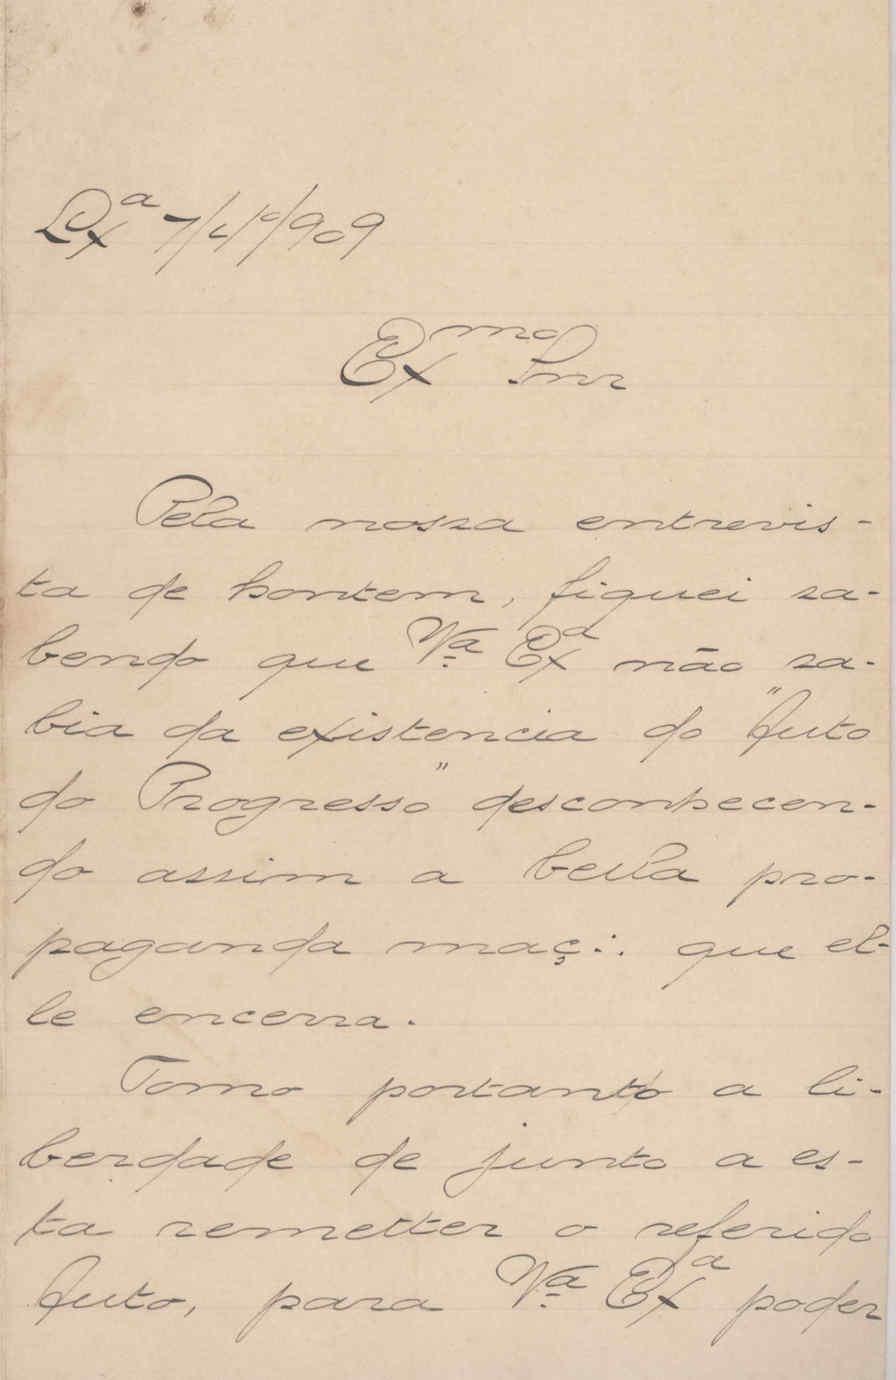 Lxª 7/4º/909
Exmo Snr
Pela nossa entrevis-
ta de hontem, fiquei sa-
bendo que Vª Exª não sa-
bia da existencia do "Auto
do Progresso" desconhecen-
do assim a bella pro-
paganda maç∴ que el-
le encerra.
Tomo portanto a li-
berdade de junto a es-
ta remetter o referido
Auto, para Vª Exª poder